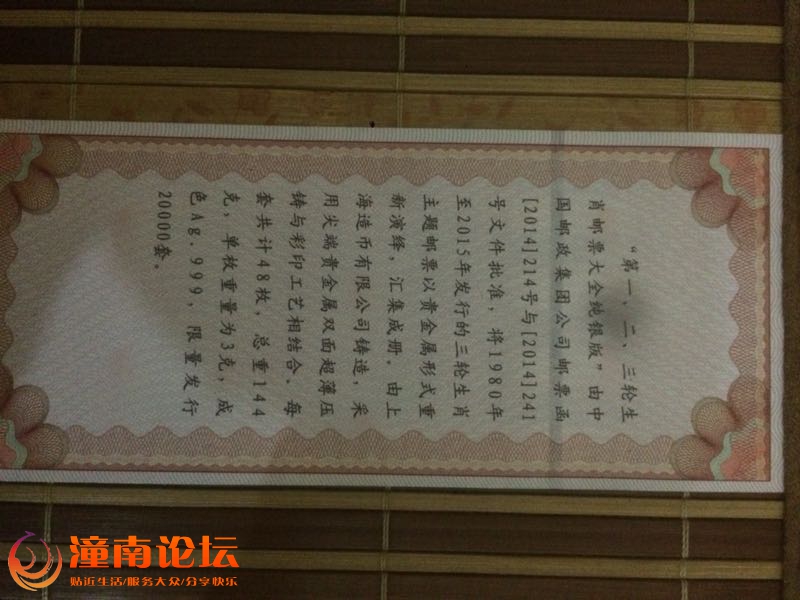 “第一、二、三轮生
肖邮票大全纯银版”由中
国邮政集团公司邮票函
[2014]214号与[2014]241
号文件批准，将1980年
至2015年发行的三轮生肖
主题邮票以贵金属形式重
新演绎，汇集成册。由上
海造币有限公司铸造，采
用尖端贵金属双面超薄压
铸与彩印工艺相结合。每
套共计48枚，总重144
克，单枚重量为3克，成
色Ag.999，限量发行
20000套。
潼南论坛
贴近生活/服务大众/分享快乐